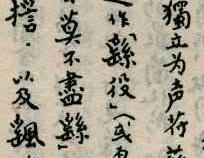 獨立为声符
作「繇役」（或
莫不盡繇」
以及